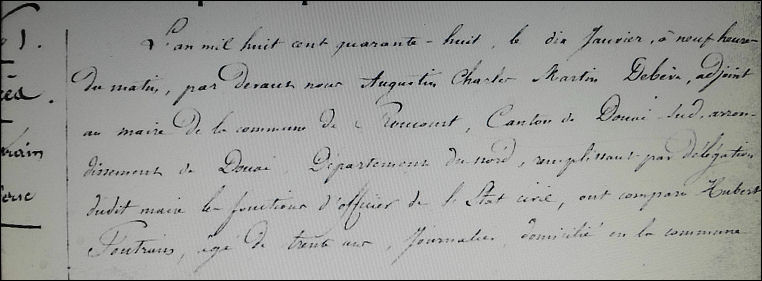 1.
L'an mil huit cent quarante-huit, le dix Janvier, à neuf heures
du matin, par devant nous Augustin Charles Martin Debève, adjoint
au maire de la commune de Roucourt, Canton de Douai Sud, arron-
dissement de Douai, Département du nord, remplissant par délégation
dudit maire les fonctions d'officier de l'Etat civil, ont comparu Hubert
âgé de trente ans, Journalier, domicilié en la commune